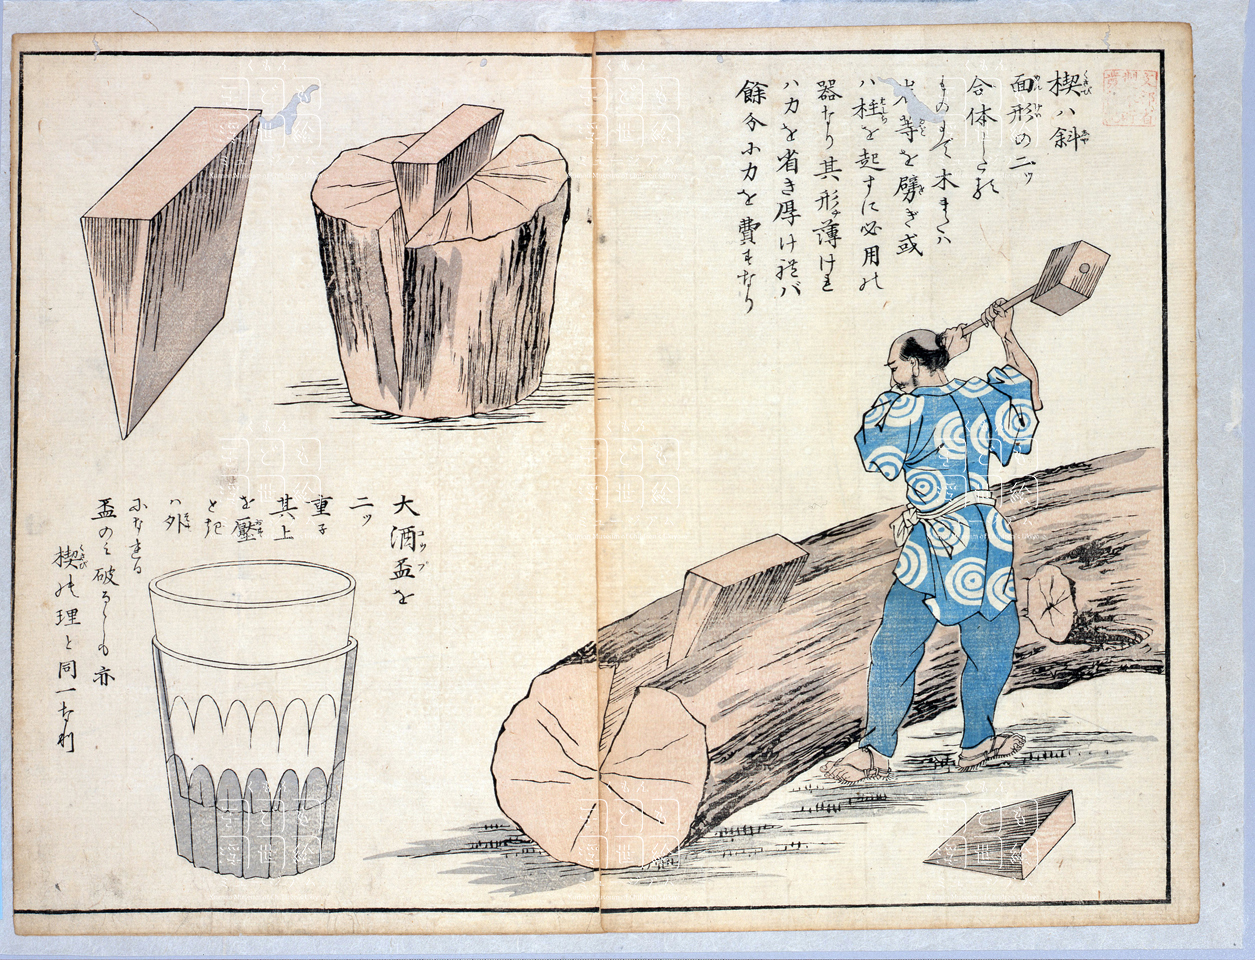 楔ハ斜
面形の二ッ
合体したる
ものにて木またハ
等を劈き或
ハ柱を起すに必用の
器なり其形ち薄けれ
ハ力を省き厚けれバ
餘分に力を費すなり
大酒盃を
二ッ
重子
其上
を壓
とき
ハ外
になれる
盃のミ破るゝも亦
楔の理と同一なり
くもん
子ども
浮世絵